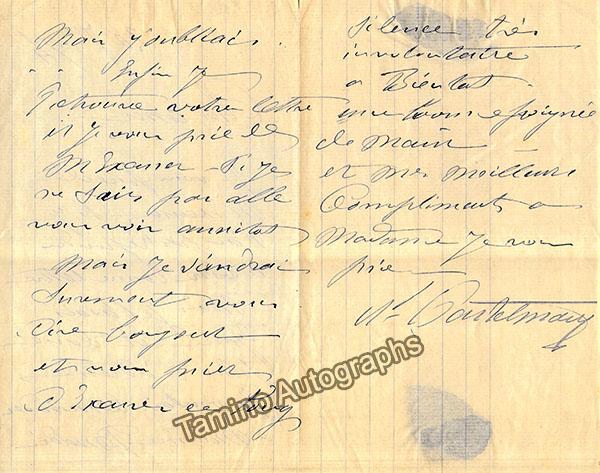 Mais j'oubliais.
Enfin je
retrouve votre lettre
et je vous prie de
m'Excuser si je
ne suis pas allé
vous voir aussitot
mais je viendrai
surement vous
dire bonjour
et vous prier
d'Excuser ce long
silence très
involontaire
a Bientot
une bonne poignée
de main
et mes meilleurs
Compliments a
Madame je vous
prie
Tamino Autographs